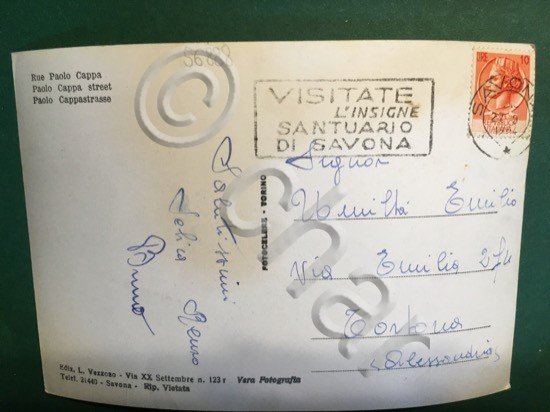 56888
Rue Paolo Cappa
Paolo Cappa street
Paolo Cappastrasse
VISITATE
L'INSIGNE
SANTUARIO
DI SAVONA
LIRE 10
SAVONA
Signor
Umiltà Emilio
Via Emilia 274
Tortona
(Alessandria)
Salutissimi
Felica Renzo
Bruno
FOTOCELERE - TORINO
Ediz. L. Vezzoso - Via XX Settembre n. 123 r Vera Fotografia
Telef. 21440 - Savona - Rip. Vietata
©